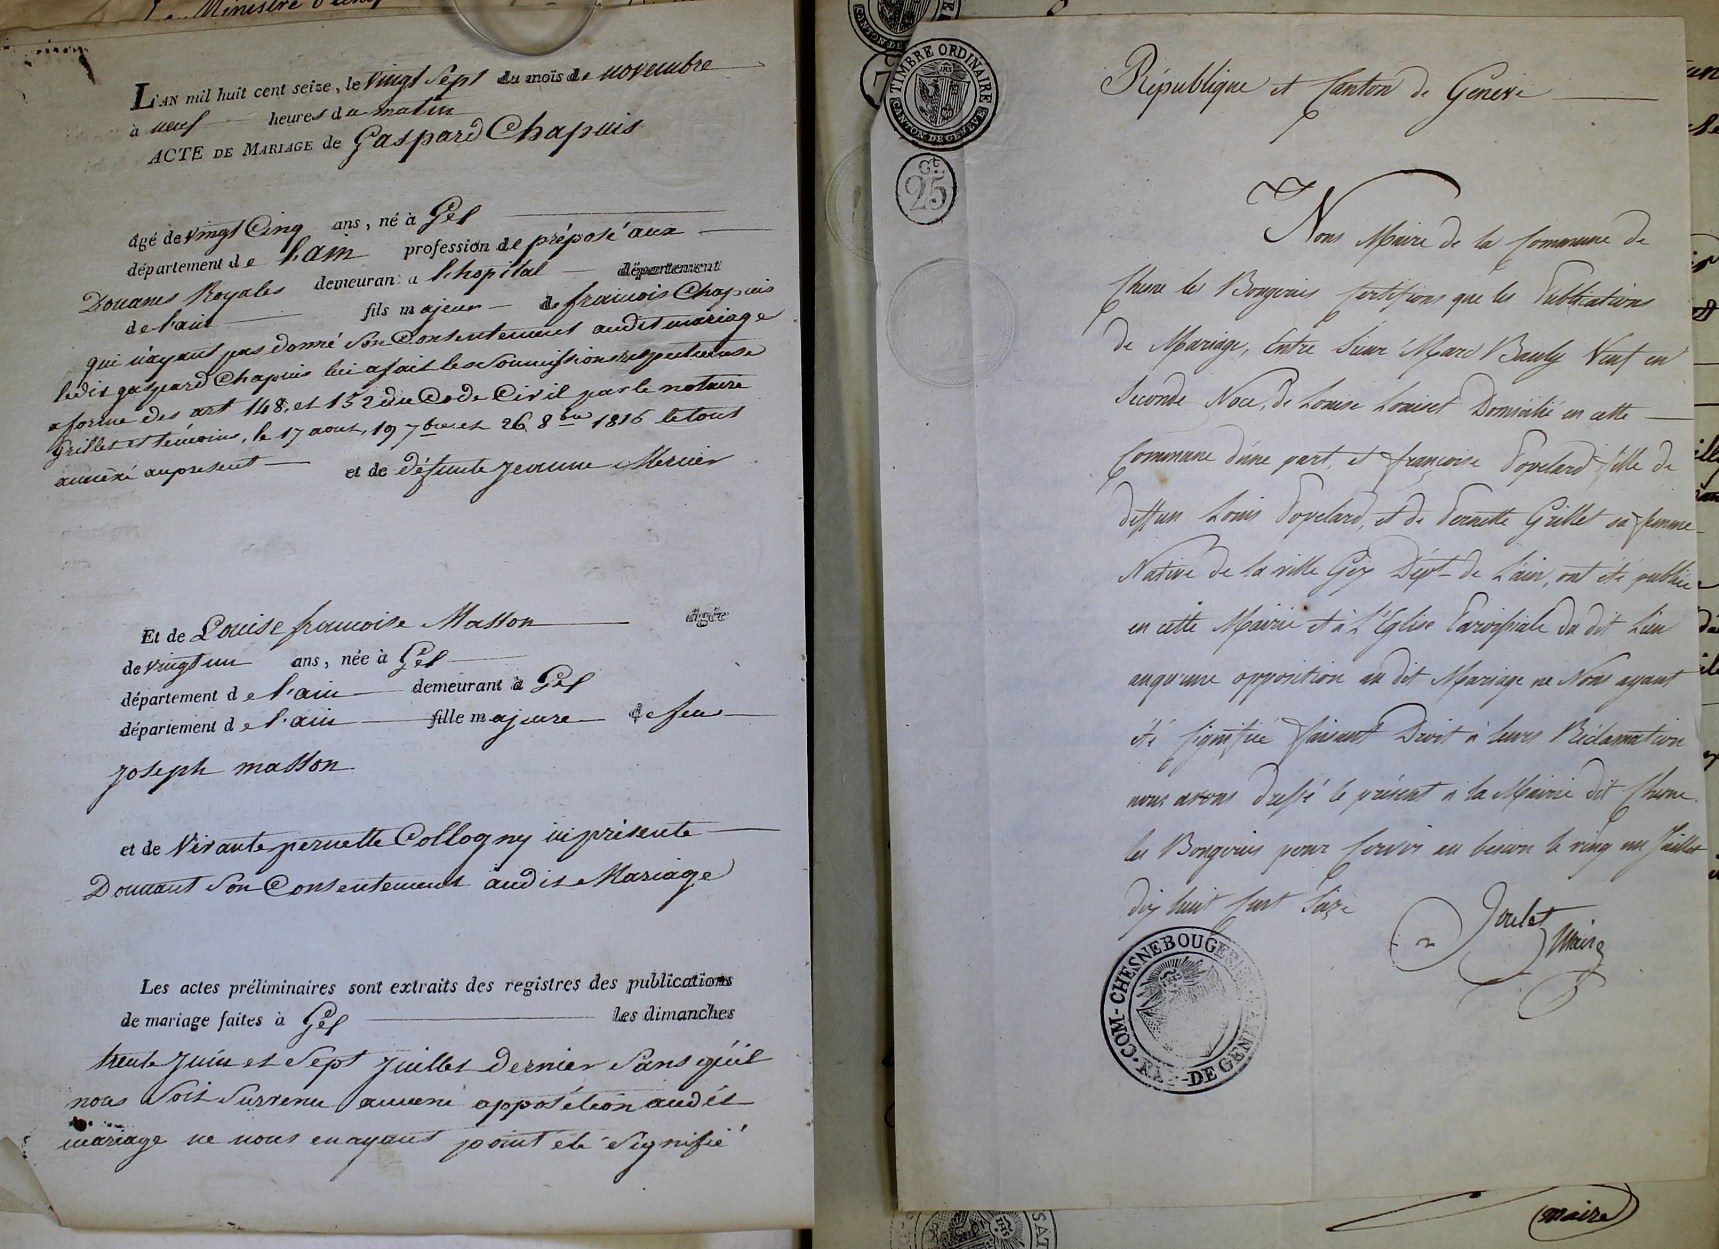 Ministre
L'AN mil huit cent seize, le vingt sept du mois de novembre
à neuf heures du matin
ACTE DE MARIAGE de Gaspard Chapuis
âgé de vingt Cinq ans, né à Gex
département de l'ain profession de préposé aux
Douanes Royales demeurant à l'hopital département
de l'ain fils majeur de francois Chapuis
qui n'ayant pas donné Son Consentement audit mariage
ledit gaspard Chapuis lui a fait les Soumissions respectueuse
a forme des art 148, et 152 du Code Civil par le notaire
Grillet et témoins, le 17 aout, 19 7bre et 26 8bre 1816 le tout
annexé au présent et de défunte jeanne Mercier
Et de Louise francoise Masson âgée
de vingt un ans, née à Gex
département de l'ain demeurant à Gex
département de l'ain fille majeure de feu
joseph masson
et de vivante pernette Collogny ici présente
Donnant Son Consentement audit Mariage
Les actes préliminaires sont extraits des registres des publications
de mariage faites à Gex les dimanches
trente Juin et Sept Juillet Dernier Sans qu'il
nous Soit Survenu aucune opposition audit
mariage ne nous en ayant point été Signifié
TIMBRE ORDINAIRE
CANTON DE GENEVE
Ct.
25
République et Canton de Genève
Nous Maire de la Commune de
Chene les Bougeries Certifions que les Publications
de Mariage, Entre Sieur Marc Bauly Veuf en
Seconde Noce, de Louise Louiset Domicilié en cette
Commune d'une part, et françoise Popelard fille de
deffun Louis Popelard, et de Pernette Grillet sa femme
Native de la ville Gex Dépt de L'ain, ont été publiée
en cette Mairie et à L'Eglise Paroissiale du dit Lieu
auqu'une opposition au dit Mariage ne Nous ayant
été signifiée faisant Droit à leurs Réclamation
nous avons dressé le présent à la Mairie dit Chene
les Bougeries pour servir au besoin le ving un Juillet
dix huit Cent Seize
Maire
COM-CHESNEBOUGERIES
DE GENEVE
maire